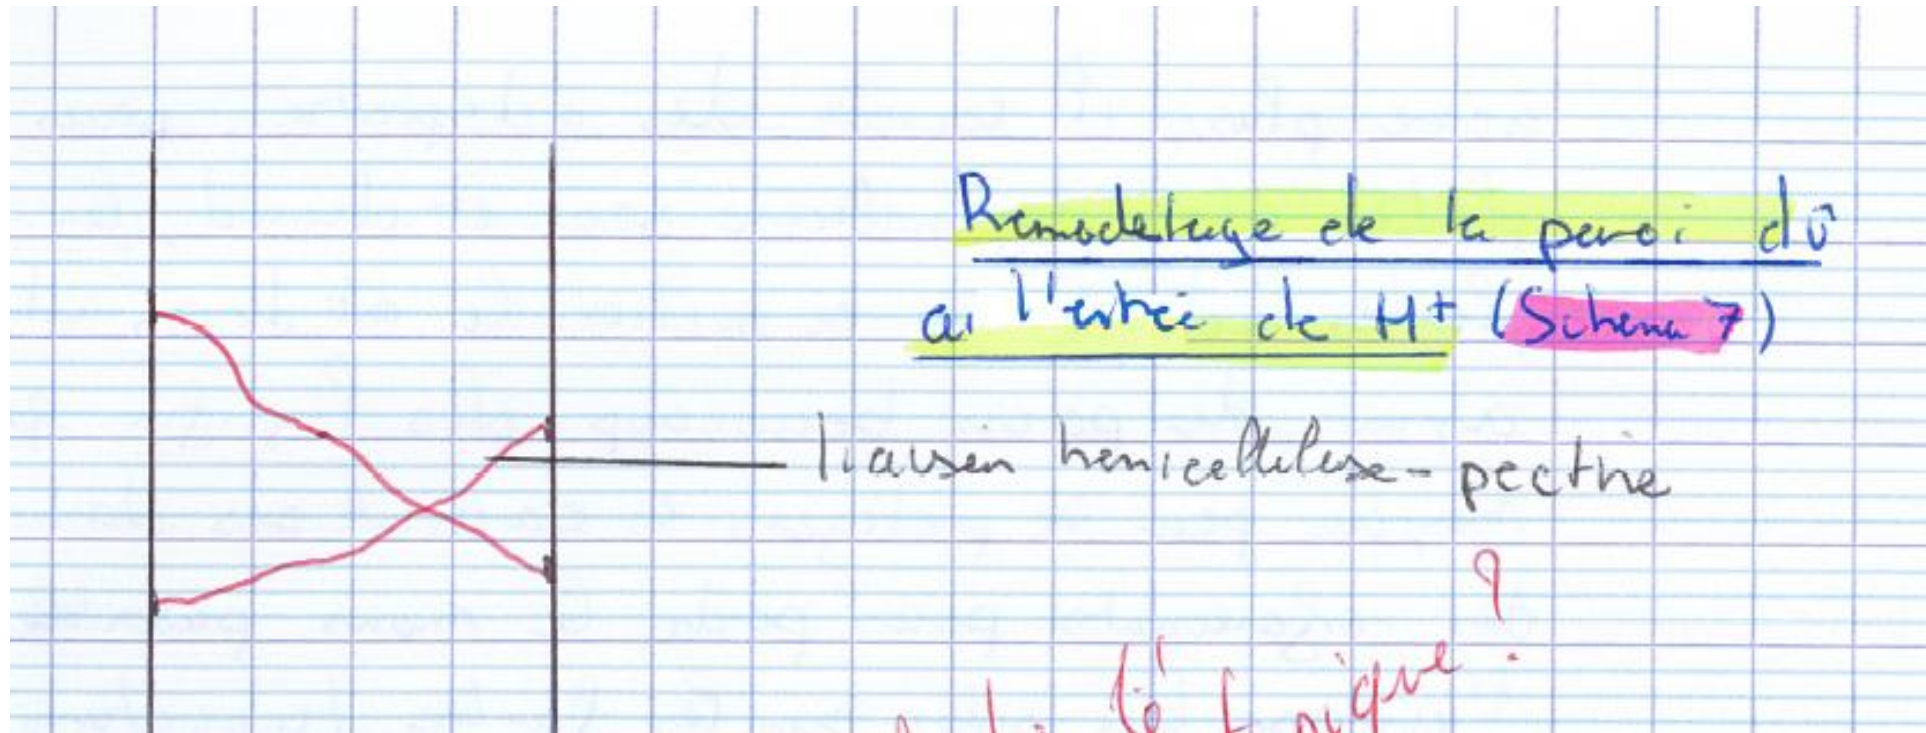 Remodelage de la paroi dû
à l'entrée de H+ (Schéma 7)
liaison hemicellulose-pectine
?